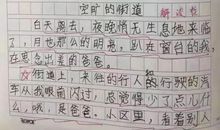 空旷的街道
白天离去，夜晚悄无生息地来临
了，月也那么的明亮，趴在窗台的我，在
思念出差的爸爸。
街道上，来往的行人和行驶的汽
车从我眼前闪过，总觉得少了点儿什
么，哦，是爸爸。小区里，看着别人